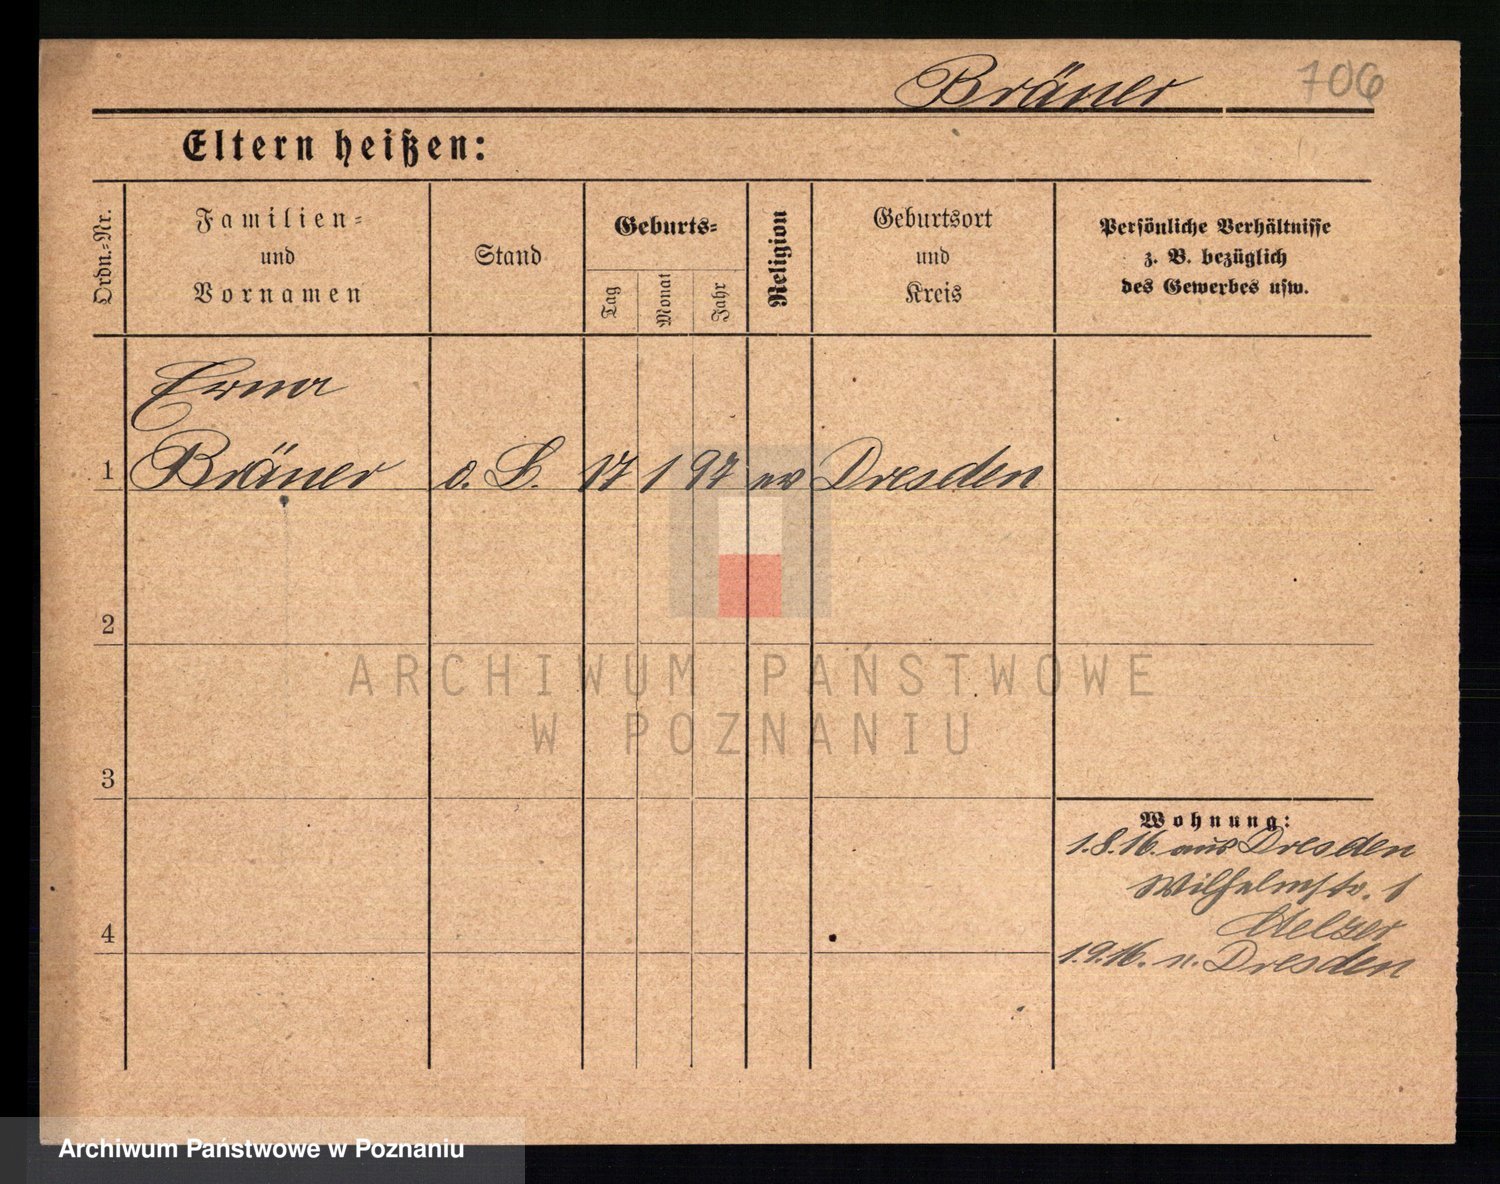 Bräner 706
Eltern heißen:
Ordn.-Nr.
Familien-
und
Vornamen
Stand
Geburts-
Tag
Monat
Jahr
Religion
Geburtsort
und
Kreis
Persönliche Verhältnisse
z. B. bezüglich
des Gewerbes usw.
Erna
1 Bräner o. B. 17 1 97 ev Dresden
2
3
4
Wohnung:
1.8.16. aus Dresden
Wilhelmstr. 1
Melzer
1.9.16. n. Dresden
ARCHIWUM PAŃSTWOWE
W POZNANIU
Archiwum Państwowe w Poznaniu